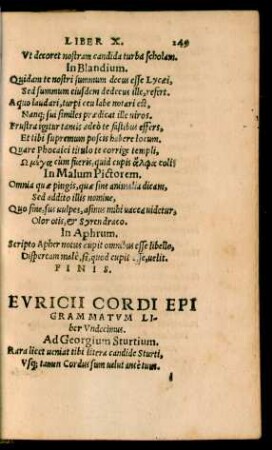 LIBER X. 149
Vt decoret nostram candida turba scholam.
In Blandium.
Quidam te nostri summum decus esse Lycæi,
Sed summum eiusdem dedecus ille, refert.
A quo laudari, turpi ceu labe notari est,
Nanq; sui similes prædicat ille uiros.
Frustra igitur tantis adeò te fastibus effers,
Et tibi supremum poscis habere locum.
Quare Phocaici titulo te corrige templi,
Ωμέγα cùm fueris, quid cupis ἄλφα coli?
In Malum Pictorem.
Omnia quæ pingis, quæ sine animalia dicam,
Sed addito illis nomine,
Quo sine, sus uulpes, asinus mihi uacca uidetur,
Olor otis, & Syren draco.
In Aphrum.
Scripto Apher notus cupit omnibus esse libello,
Dispeream malè, si, quod cupit esse, uelit.
FINIS.
EVRICII CORDI EPI
GRAMMATVM LI-
ber Vndecimus.
Ad Georgium Sturtium.
Rara licet ueniat tibi litera candide Sturti,
Vsq; tamen Cordus sum uelut antè tuus.